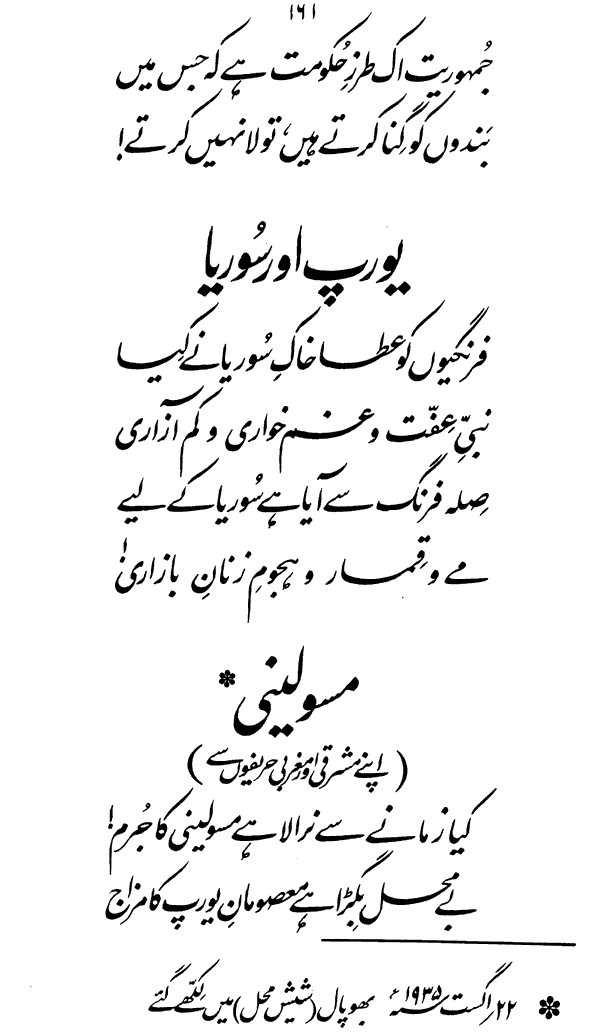 ۱۶۱
جُمہوریت اک طرزِ حکومت ہے کہ جس میں
بَندوں کو گِنا کرتے ہیں، تولا نہیں کرتے!
یورپ اور سُوریا
فرنگیوں کو عطا خاکِ سُوریا نے کِیا
نبیِّ عِفّت و غم خواری و کم آزاری
صِلہ فرنگ سے آیا ہے سُوریا کے لیے
مے و قِمار و ہجومِ زنانِ بازاری!
مسولینی*
(اپنے مشرقی اور مغربی حریفوں سے)
کیا زمانے سے نرالا ہے مسولینی کا جُرم!
بے محل بِگڑا ہے معصومانِ یورپ کا مزاج
* ۲۲؍ اگست ۱۹۳۵ء بھوپال (شیش محل) میں لِکھّے گئے